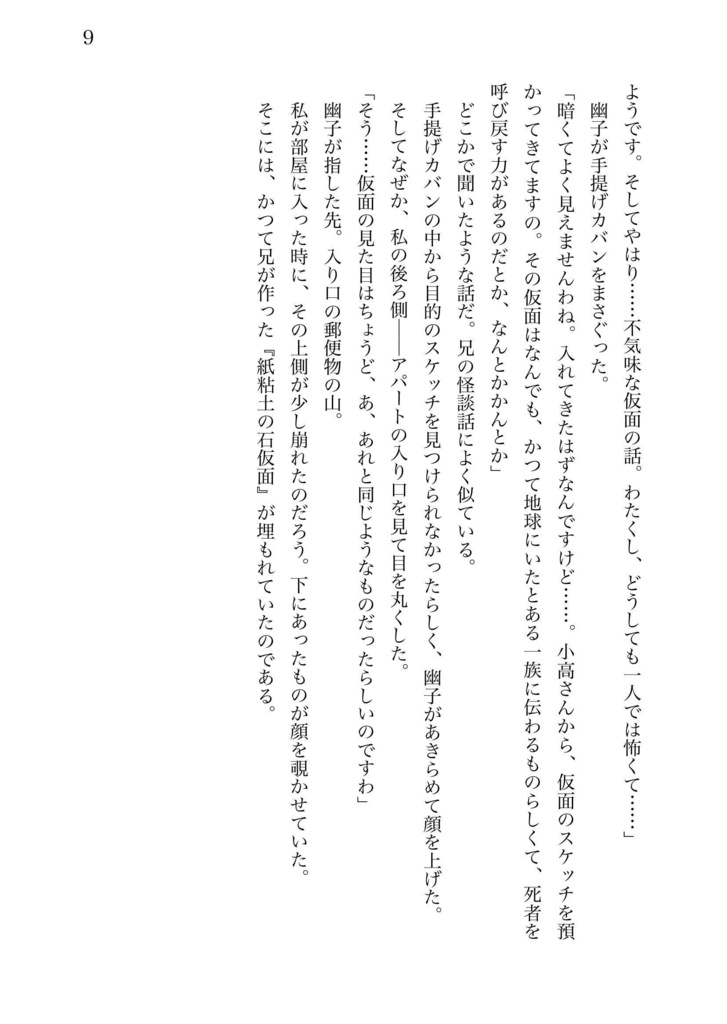 9
ようです。そしてやはり……不気味な仮面の話。わたくし、どうしても一人では怖くて……」
幽子が手提げカバンをまさぐった。
「暗くてよく見えませんわね。入れてきたはずなんですけど……。小高さんから、仮面のスケッチを預
かってきてますの。その仮面はなんでも、かつて地球にいたとある一族に伝わるものらしくて、死者を
呼び戻す力があるのだとか、なんとかかんとか」
どこかで聞いたような話だ。兄の怪談話によく似ている。
手提げカバンの中から目的のスケッチを見つけられなかったらしく、幽子があきらめて顔を上げた。
そしてなぜか、私の後ろ側――アパートの入り口を見て目を丸くした。
「そう……仮面の見た目はちょうど、あ、あれと同じようなものだったらしいのですわ」
幽子が指した先。入り口の郵便物の山。
私が部屋に入った時に、その上側が少し崩れたのだろう。下にあったものが顔を覗かせていた。
そこには、かつて兄が作った『紙粘土の石仮面』が埋もれていたのである。